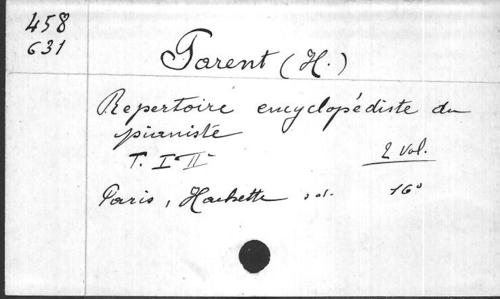 458
631
Parent (H.)
Repertoire encyclopédiste du
pianiste
T. I-II 2 vol.
Paris, Hachette s.d. 16°